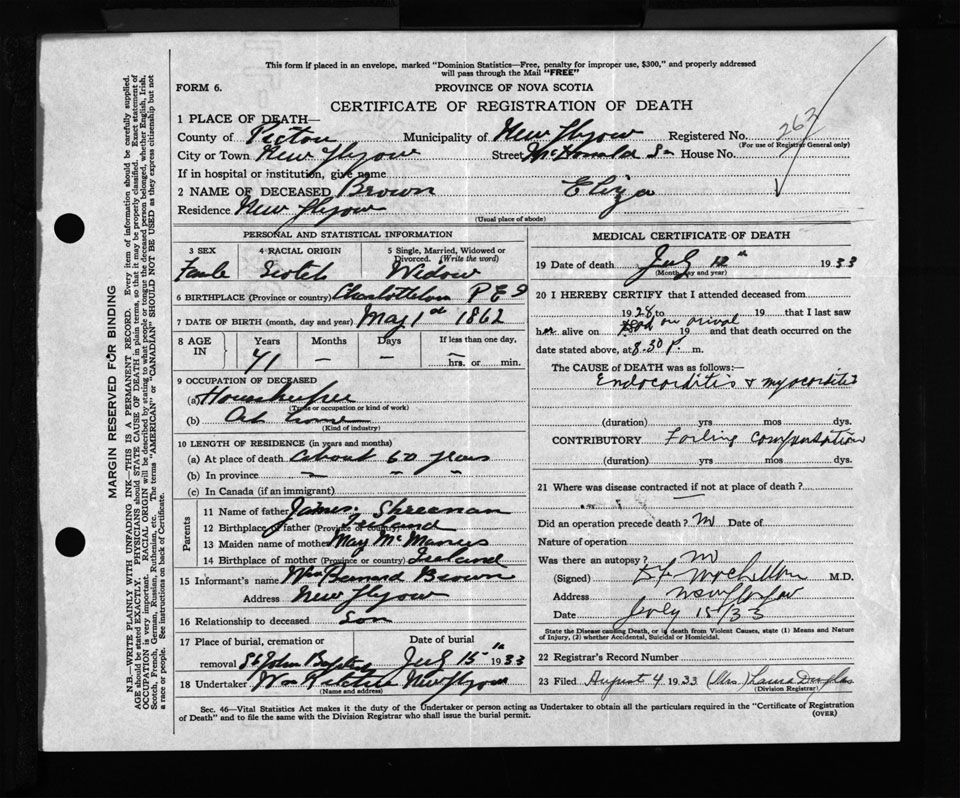 This form if placed in an envelope, marked "Dominion Statistics—Free, penalty for improper use, $300," and properly addressed
will pass through the Mail "FREE"
FORM 6.
PROVINCE OF NOVA SCOTIA
CERTIFICATE OF REGISTRATION OF DEATH
1 PLACE OF DEATH—
County of Pictou Municipality of New Glasgow Registered No. 263
(For use of Registrar General only)
City or Town New Glasgow Street McDonald St House No.
If in hospital or institution, give name
2 NAME OF DECEASED Brown Eliza
Residence New Glasgow
(Usual place of abode)
PERSONAL AND STATISTICAL INFORMATION
3 SEX 4 RACIAL ORIGIN 5 Single, Married, Widowed or
Divorced. (Write the word)
Female Scotch Widow
6 BIRTHPLACE (Province or country) Charlottetown P E I
7 DATE OF BIRTH (month, day and year) May 1st 1862
8 AGE IN Years Months Days If less than one day,
71 — — hrs. or min.
9 OCCUPATION OF DECEASED
(a) Housekeeper
(Trade or occupation or kind of work)
(b) At home
(Kind of industry)
10 LENGTH OF RESIDENCE (in years and months)
(a) At place of death about 60 years
(b) In province " " "
(c) In Canada (if an immigrant)
Parents
11 Name of father James Sheenan
12 Birthplace of father (Province or country) Ireland
13 Maiden name of mother May McManus
14 Birthplace of mother (Province or country) Ireland
15 Informant's name Wm Bernard Brown
Address New Glasgow
16 Relationship to deceased Son
17 Place of burial, cremation or Date of burial
removal St John Baptist July 15th 1933
18 Undertaker Wm New Glasgow
(Name and address)
MEDICAL CERTIFICATE OF DEATH
19 Date of death July 12th 1933
(Month, day and year)
20 I HEREBY CERTIFY that I attended deceased from
1928 to 19 that I last saw
her alive on Dead on arival 19 and that death occurred on the
date stated above, at 8.30 P. m.
The CAUSE of DEATH was as follows:—
Endocorditis & myocorditis
(duration) yrs mos dys.
CONTRIBUTORY Failing compensation
(duration) yrs mos dys.
21 Where was disease contracted if not at place of death?
Did an operation precede death? no Date of
Nature of operation
Was there an autopsy? no
(Signed) M.D.
Address New Glasgow
Date July 15/33
State the Disease causing Death, or in death from Violent Causes, state (1) Means and Nature
of Injury, (2) whether Accidental, Suicidal or Homicidal.
22 Registrar's Record Number
23 Filed August 4 1933 (Mrs) Laura Douglas
(Division Registrar)
Sec. 46—Vital Statistics Act makes it the duty of the Undertaker or person acting as Undertaker to obtain all the particulars required in the "Certificate of Registration
of Death" and to file the same with the Division Registrar who shall issue the burial permit.
(OVER)
MARGIN RESERVED FOR BINDING
N.B.—WRITE PLAINLY WITH UNFADING INK—THIS IS A PERMANENT RECORD. Every item of information should be carefully supplied.
AGE should be stated EXACTLY. PHYSICIANS should STATE CAUSE OF DEATH in plain terms, so that it may be properly classified. Exact statement of
OCCUPATION is very important. RACIAL ORIGIN will be described by stating to what people or tongue the deceased person belonged, whether English, Irish,
Scotch, French, German, Russian, Ruthenian, etc. The terms "AMERICAN" or "CANADIAN" SHOULD NOT BE USED as they express citizenship but not
a race or people. See instructions on back of Certificate.